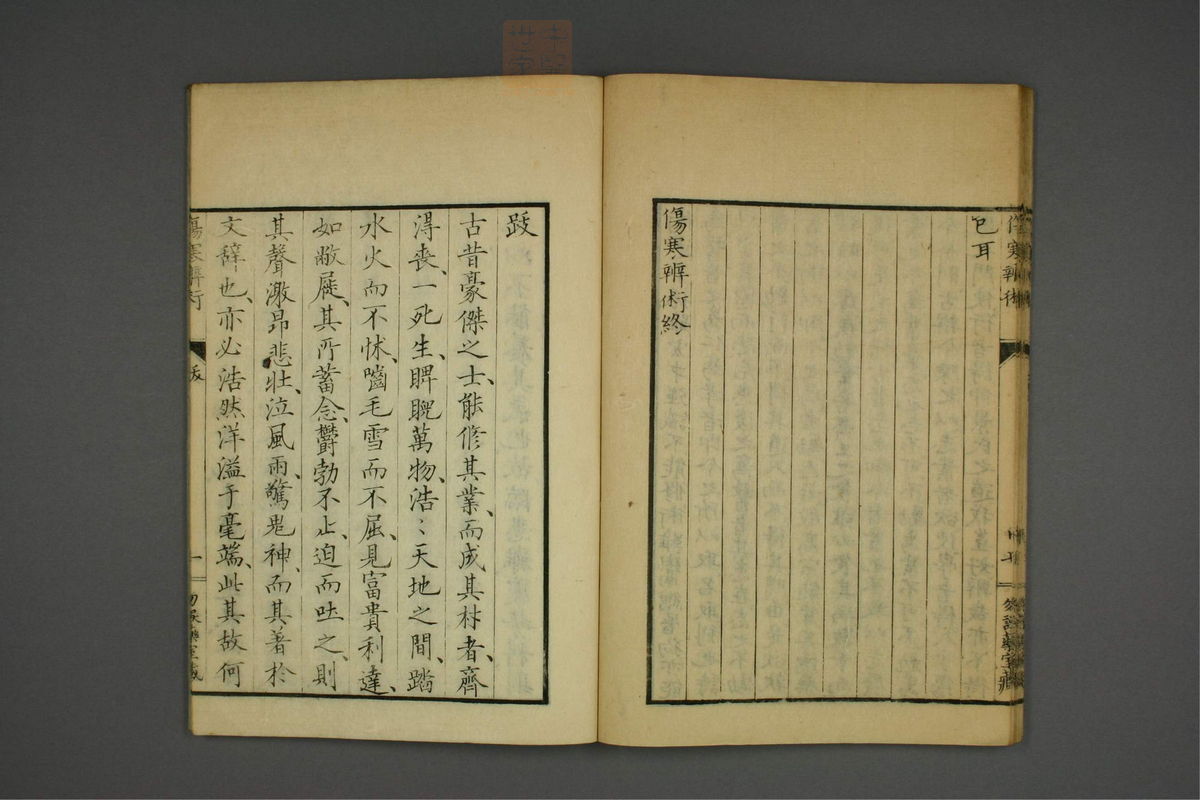 傷寒辨術
已耳
傷寒辨術終
跋
古昔豪傑之士、能脩其業、而成其材者、齊
得喪、一死生、睥睨萬物、浩〻天地之間、蹈
水火而不怵、嚙毛雪而不屈、見富貴利達、
如敝屣、其所蓄念、欝勃不止、迫而吐之、則
其聲激昂悲壯、泣風雨、驚鬼神、而其著於
文辞也、亦必浩然洋溢于毫端、此其故何
傷寒辨術
跋
一